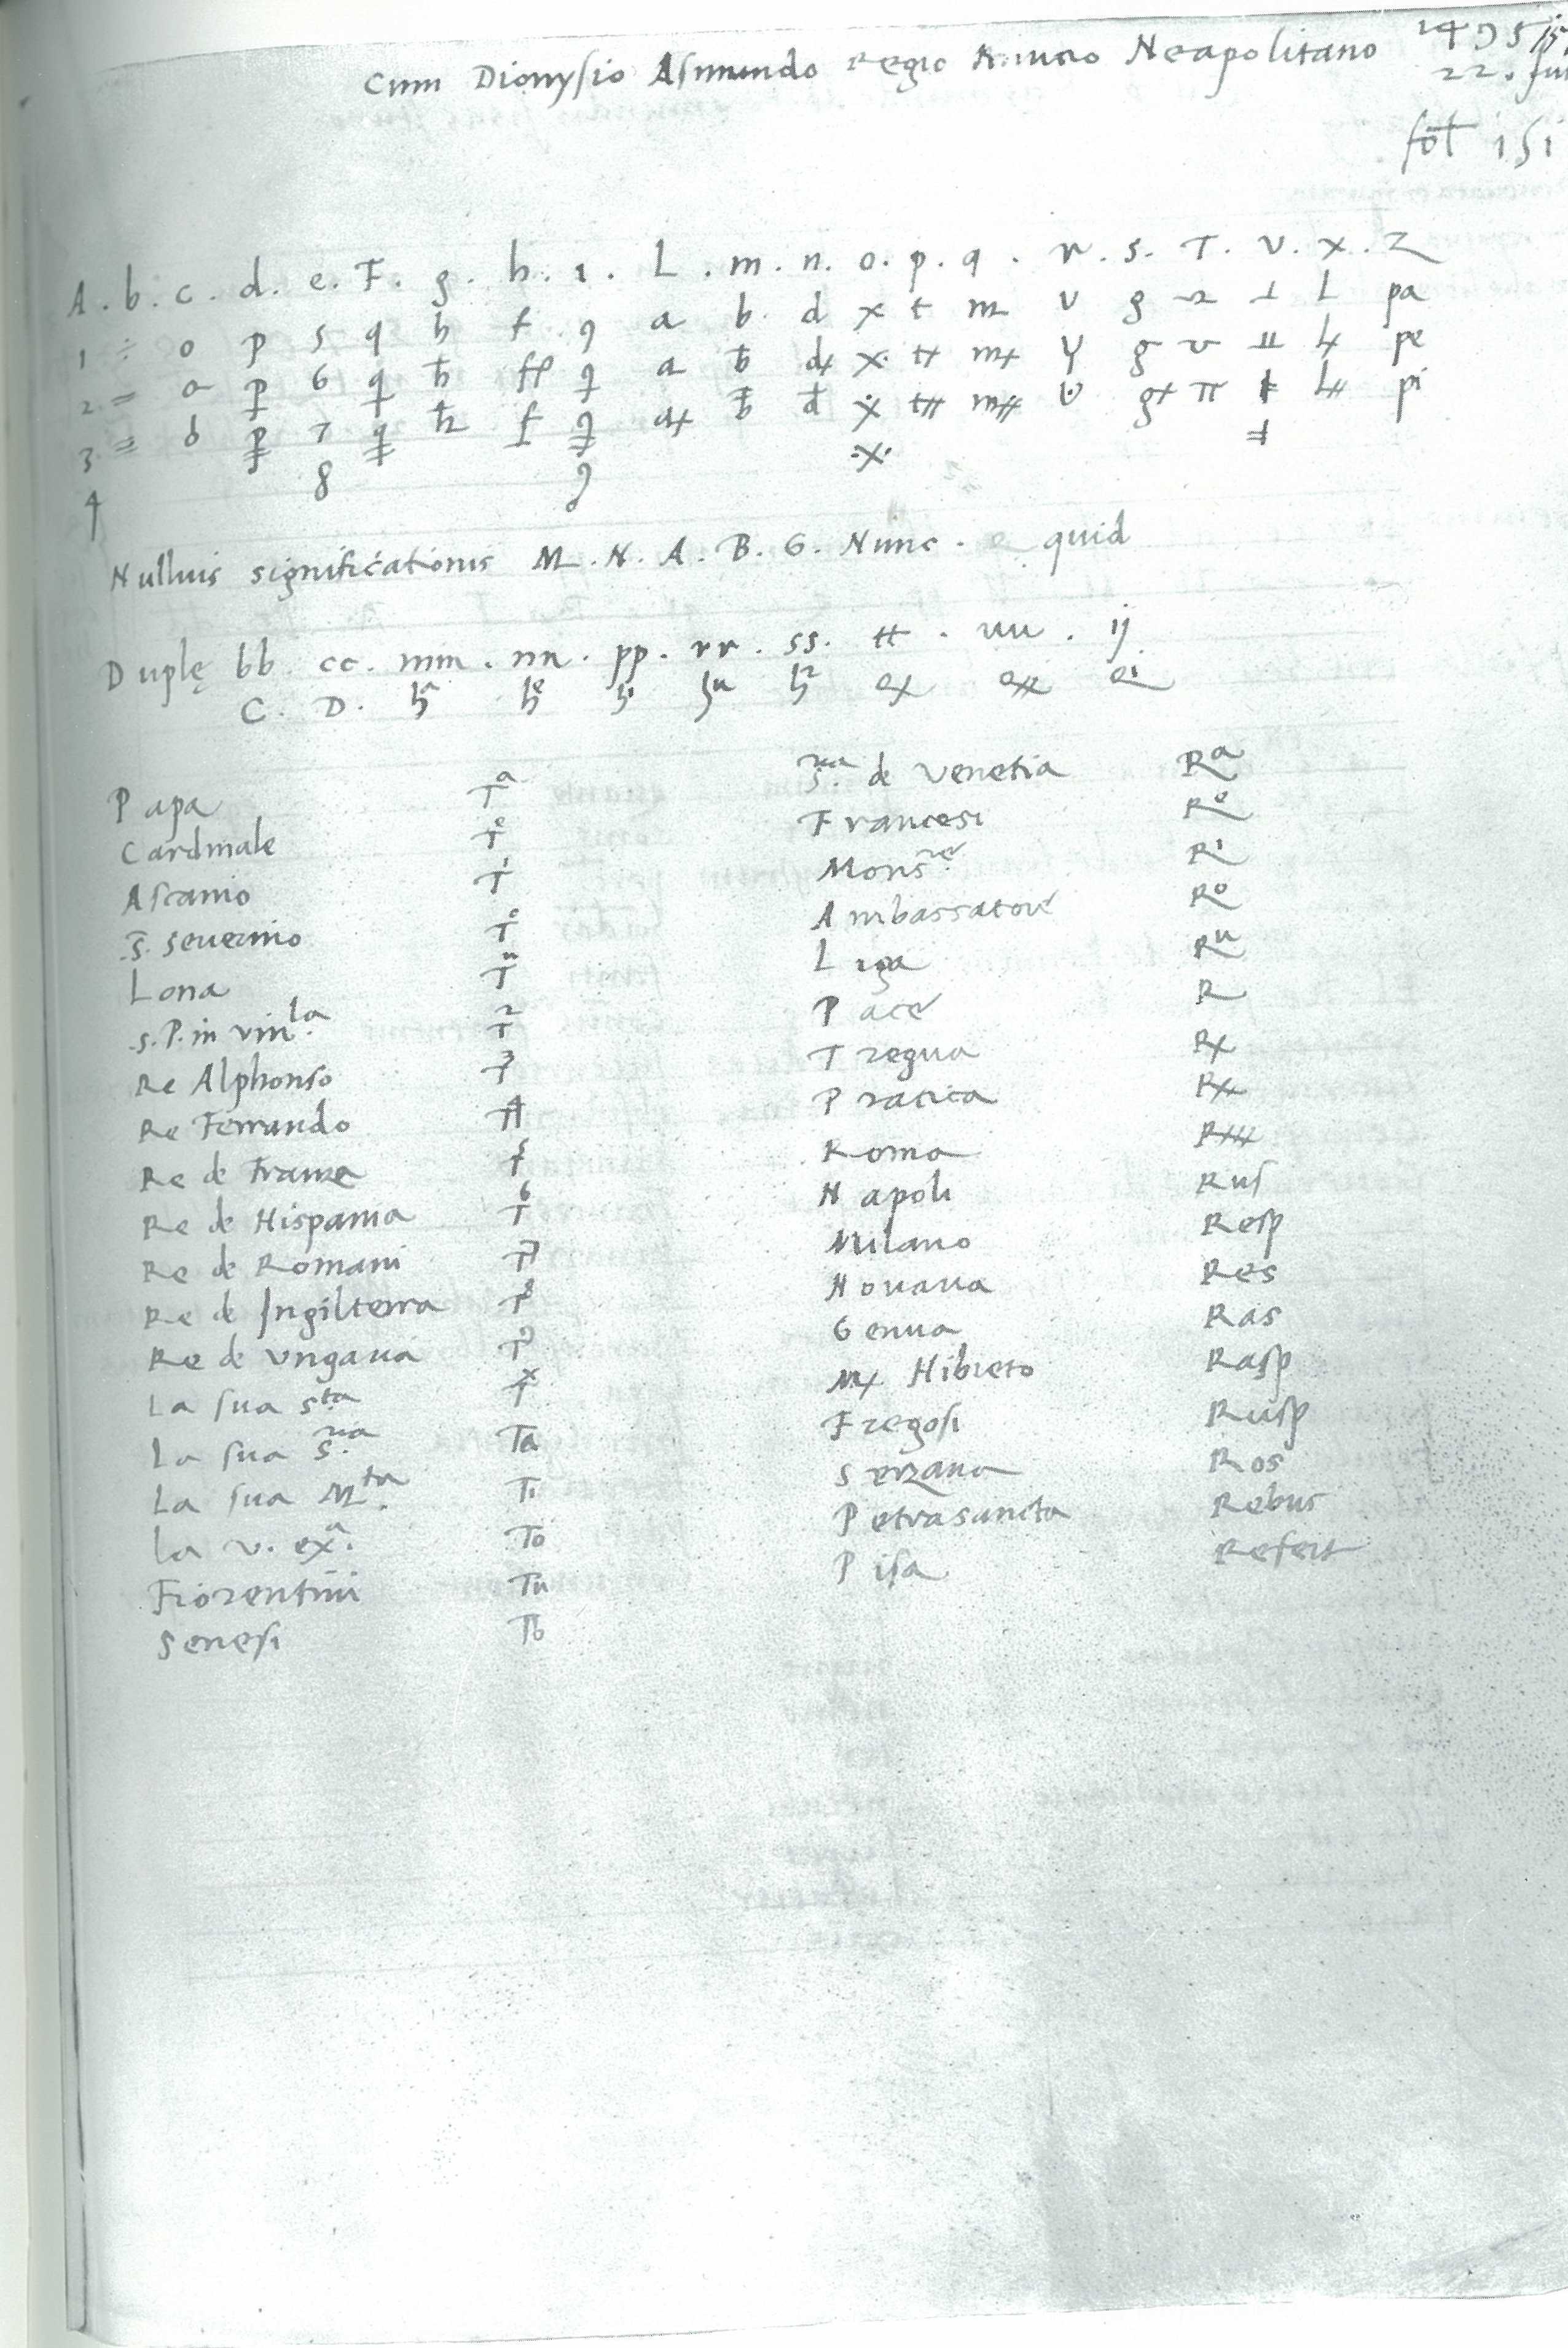 Cum Dionysio Asmundo Regio Neapolitano 1495
22. Jun
fol 151
A . b . c . d . e . F . g . h . i . L . m . n . o . p . q . r . s . T . v . x . Z
1 ÷ o p 5 q h f 9 a b d x t m v g 2 ⊥ L pa
2 = a p 6 q ħ ff 9 a ƀ d x· tt m y g v ⊥⊥ L pe
3 ≡ d p 7 q ħ f 9 a ƀ đ ẋ tt m v g π ǂ L pi
4 8 9 ·x· ǂ
Nullius significationis M . N . A . B . G . Nunc . quid
Duplę bb cc . mm . nn . pp . rr . ss . tt . uu . ij
C . D . hᵃ hᵉ hⁱ hᵘ h² ex exx ei
Papa Tᵃ
Cardinale Tᵉ
Ascanio Tⁱ
S. Severino Tᵒ
Lona Tᵘ
S. P. in vinˡᵃ. T²
Re Alphonso T³
Re Ferrando T⁴
Re de Franza T⁵
Re de Hispania T⁶
Re de Romani T⁷
Re de Ingilterra T⁸
Re de Ungaria T⁹
La sua sᵗᵃ Tˣ
La sua S.ʳⁱᵃ Ta
La sua M.ᵗᵃ Ti
La v. exᵃ. To
Fiorentini Tu
Senesi Tb
S.ʳⁱᵃ de Venetia Rᵃ
Francesi Rᵉ
Monsʳᵉ Rⁱ
Ambassatore Rᵒ
Liga Rᵘ
Pace R
Tregua R+
Pratica R++
Roma R+++
Napoli Rus
Milano Resp
Novara Res
Genua Ras
M. Hibieto Rasp
Fregosi Rusp
Serzana Ros
Petrasancta Rebus
Pisa Refert